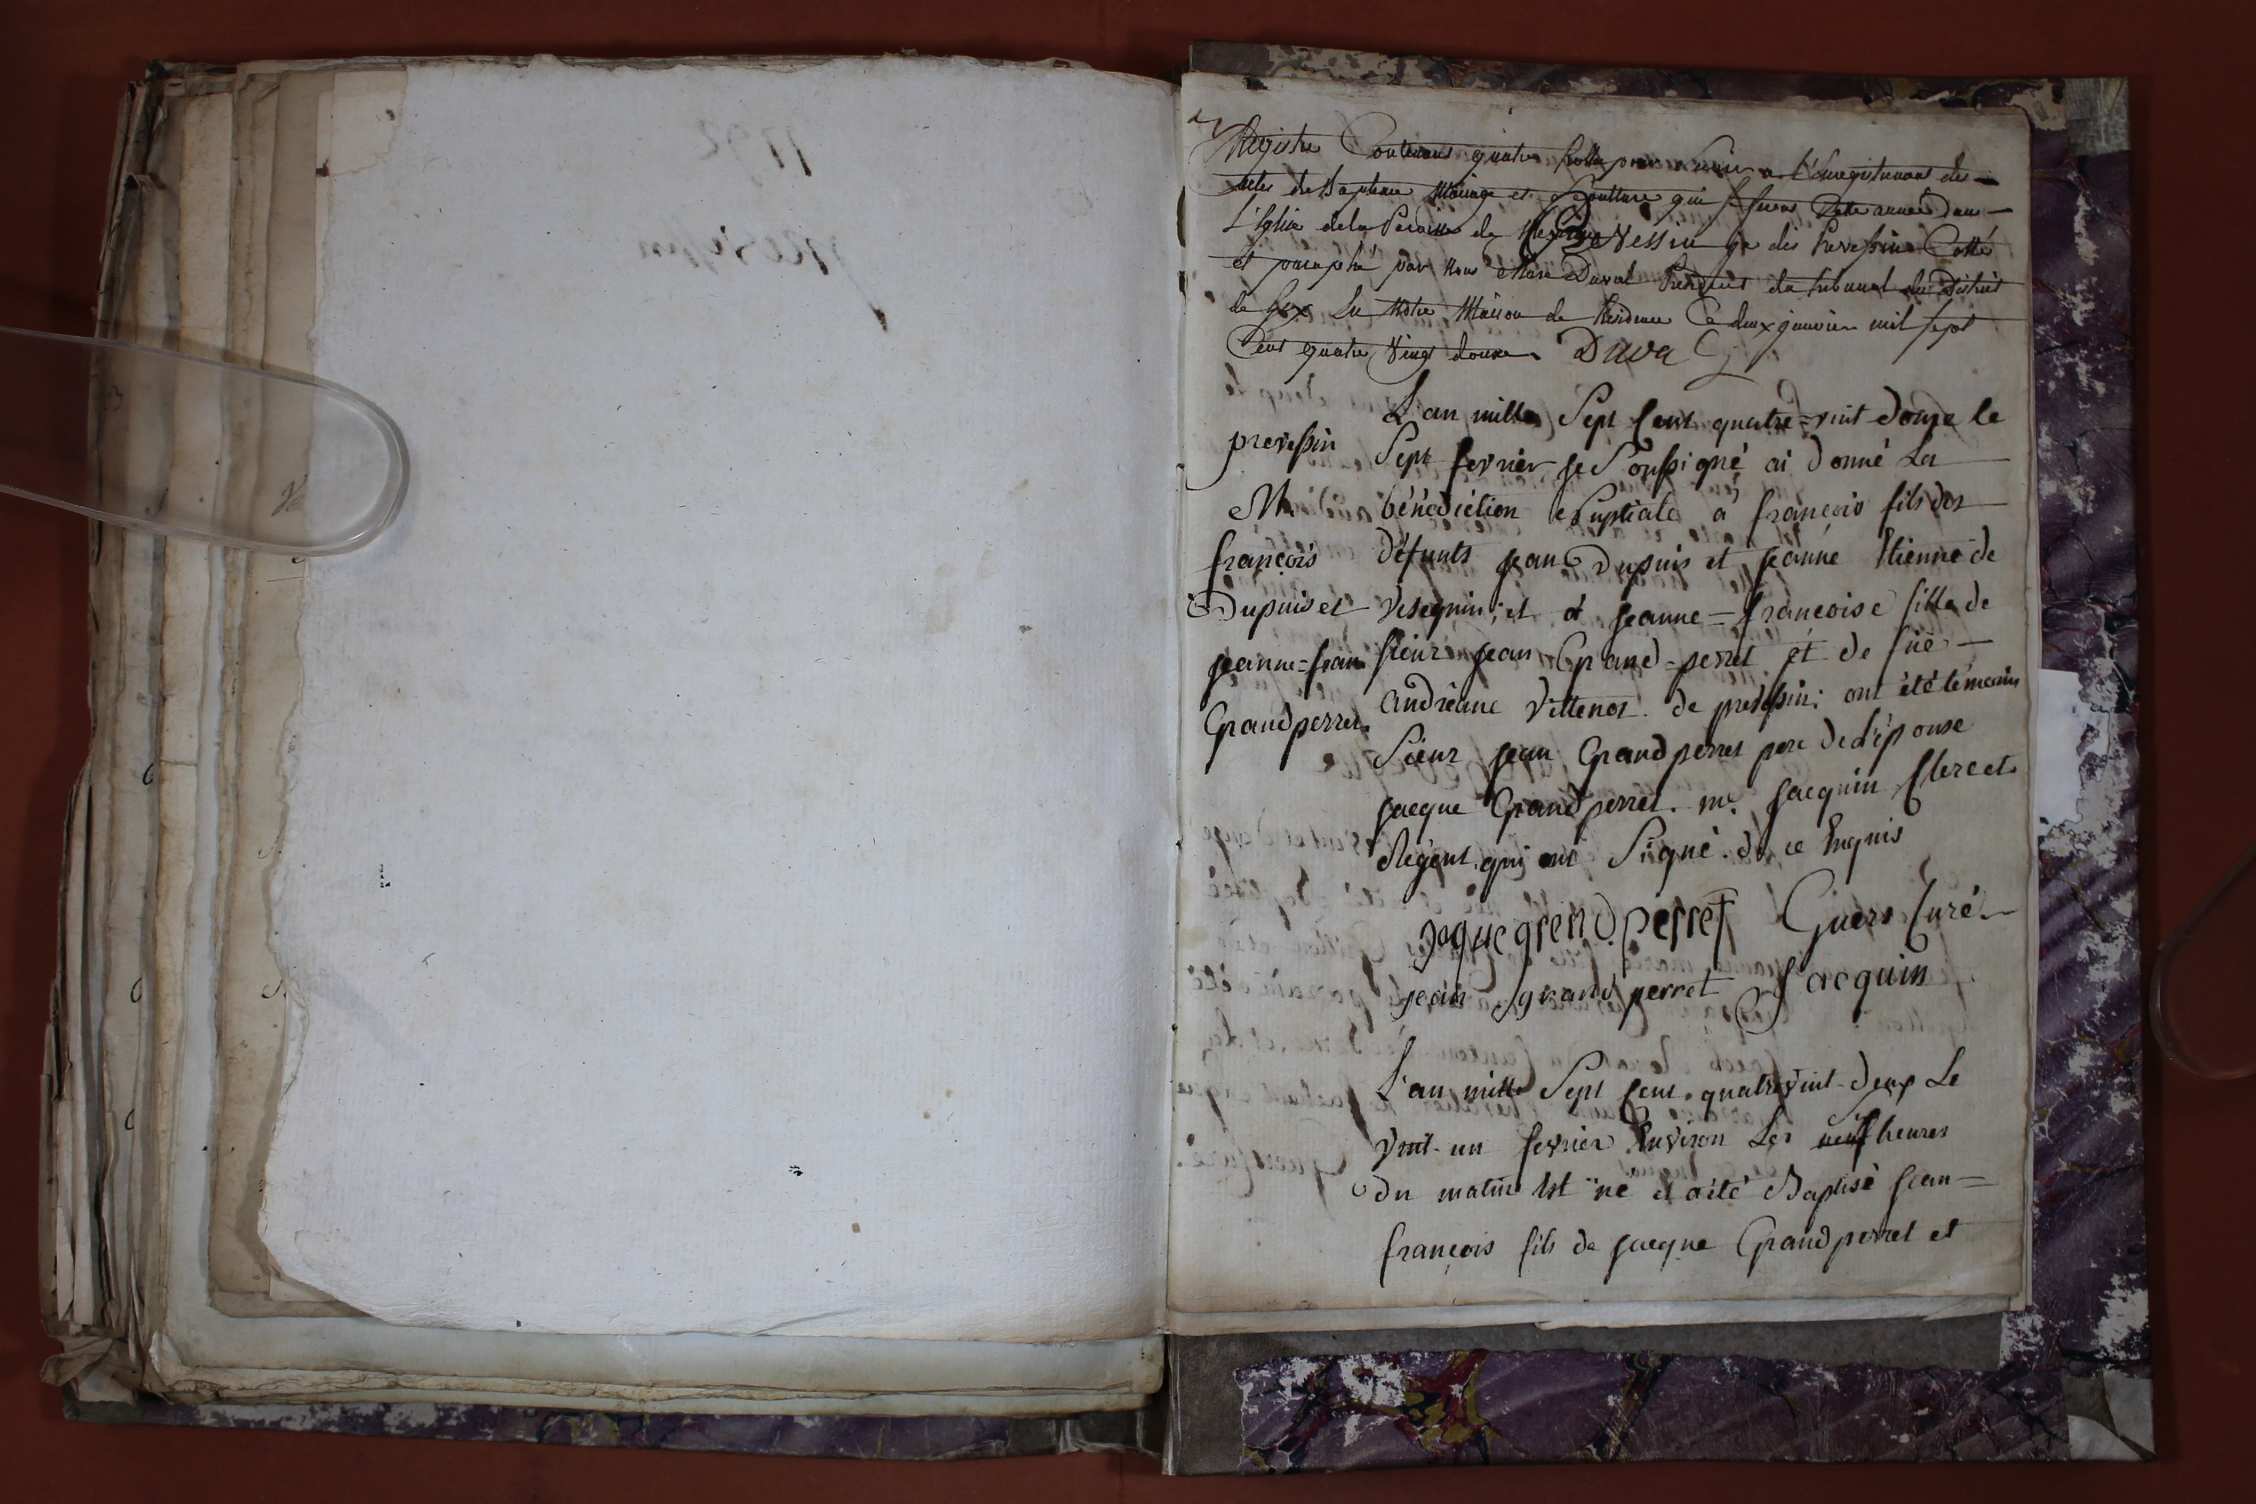 Registre Contenant quatre feuillets pour servir a l'Enregistrement des
actes de Bapteme Mariage et Sepulture qui se feront cette année dans
L'Eglise de la Paroisse de Prevessin je dis Prevessin Cotté
et paraphé par nous Marc Duval President du tribunal du District
de Gex En Notre Maison de Residence Ce deux janvier mil sept
Cent quatre Vingt douze Duval
prevessin
M
françois
Dupuis et
jeanne=fran
Grandperret
L'an mille Sept Cent quatre=vint douze le
Sept fevrier je Soussigné ai donné La
bénédiction Nuptiale a françois fils des
défunts jean Dupuis et jeanne Etienne de
Vesegnin; et à jeanne=francoise fille de
sieur jean Grand=perret et de fue
andréane Villenos de prevessin: ont été témoins
Sieur jean Grandperret pere de l'épouse
jacque Grandperret. me jacquin Clerc et
Régent. qui ont Signé. de ce Enquis
jaque grend perret Guers Curé
jean grand perret Jacquin
L'an mille Sept Cent. quatrevint-deux Le
Vint-un fevrier Environ Les neuf heures
du matin Est né et a été Baptisé jean=
françois fils de jacque Grandperret et